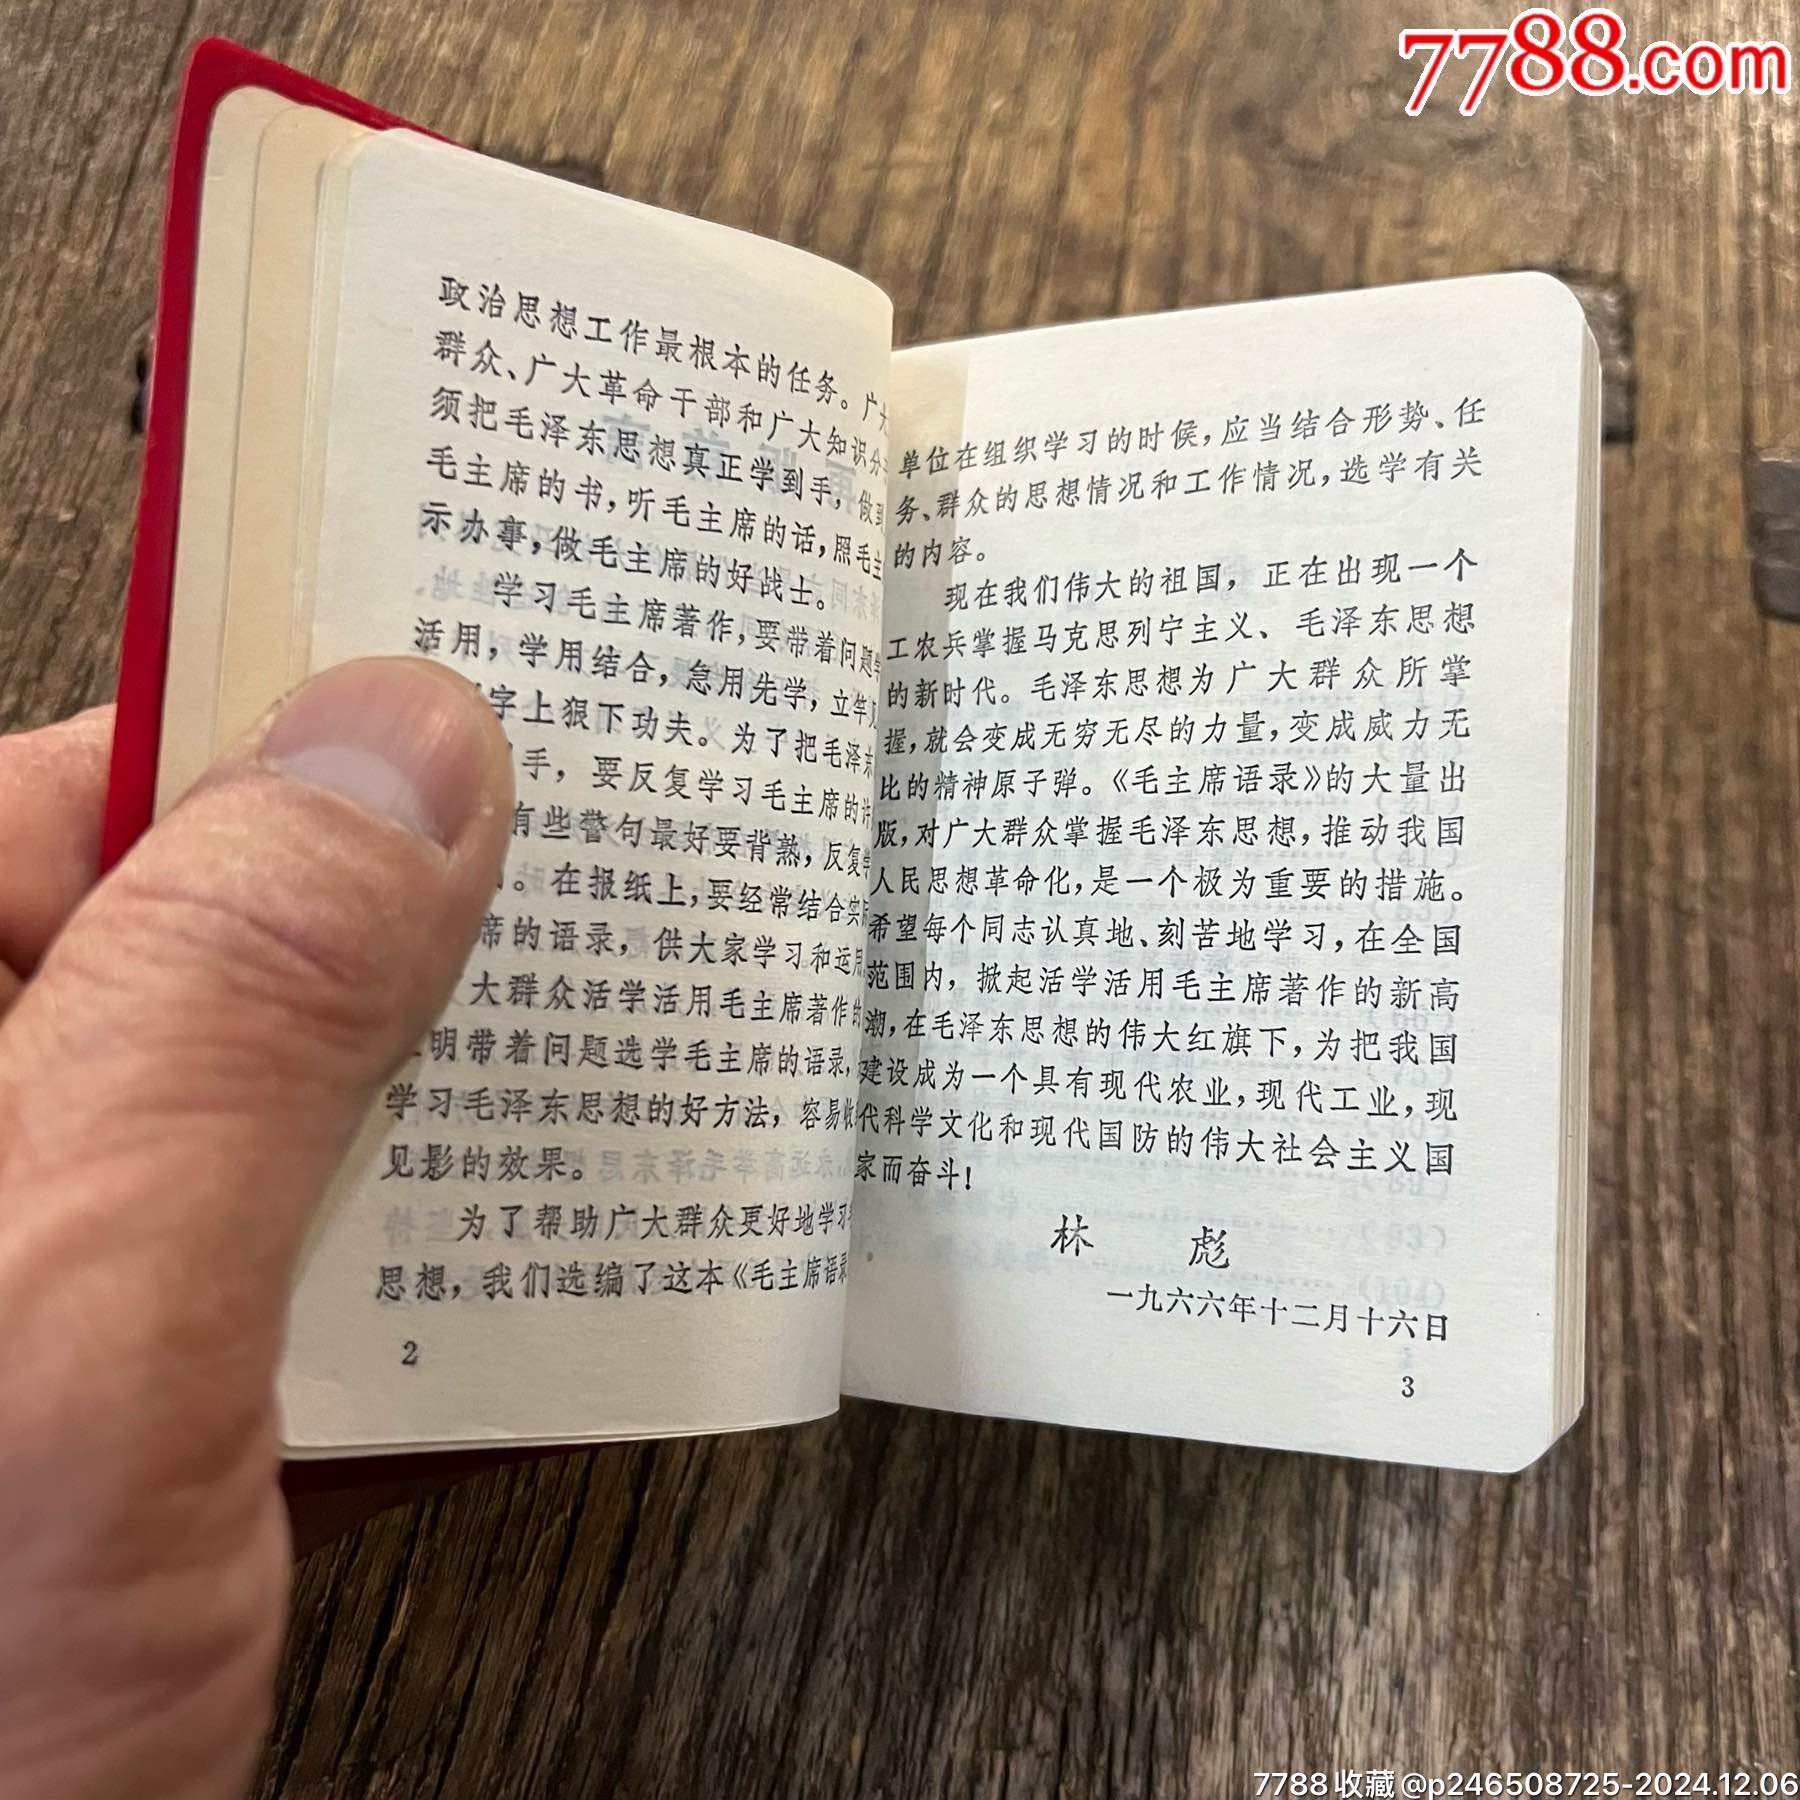 7788.com
政治思想工作最根本的任务。广大
群众、广大革命干部和广大知识分
须把毛泽东思想真正学到手，做到
毛主席的书，听毛主席的话，照毛主
示办事，做毛主席的好战士。
学习毛主席著作，要带着问题学
活用，学用结合，急用先学，立竿见
字上狠下功夫。为了把毛泽东
手，要反复学习毛主席的许
有些警句最好要背熟，反复学
。在报纸上，要经常结合实际
席的语录，供大家学习和运用。
大群众活学活用毛主席著作的
明带着问题选学毛主席的语录，
学习毛泽东思想的好方法，容易收
见影的效果。
为了帮助广大群众更好地学习
思想，我们选编了这本《毛主席语录
2
单位在组织学习的时候，应当结合形势、任
务、群众的思想情况和工作情况，选学有关
的内容。
现在我们伟大的祖国，正在出现一个
工农兵掌握马克思列宁主义、毛泽东思想
的新时代。毛泽东思想为广大群众所掌
握，就会变成无穷无尽的力量，变成威力无
比的精神原子弹。《毛主席语录》的大量出
版，对广大群众掌握毛泽东思想，推动我国
人民思想革命化，是一个极为重要的措施。
希望每个同志认真地、刻苦地学习，在全国
范围内，掀起活学活用毛主席著作的新高
潮，在毛泽东思想的伟大红旗下，为把我国
建设成为一个具有现代农业，现代工业，现
代科学文化和现代国防的伟大社会主义国
家而奋斗！
林 彪
一九六六年十二月十六日
3
7788收藏@p246508725-2024.12.06